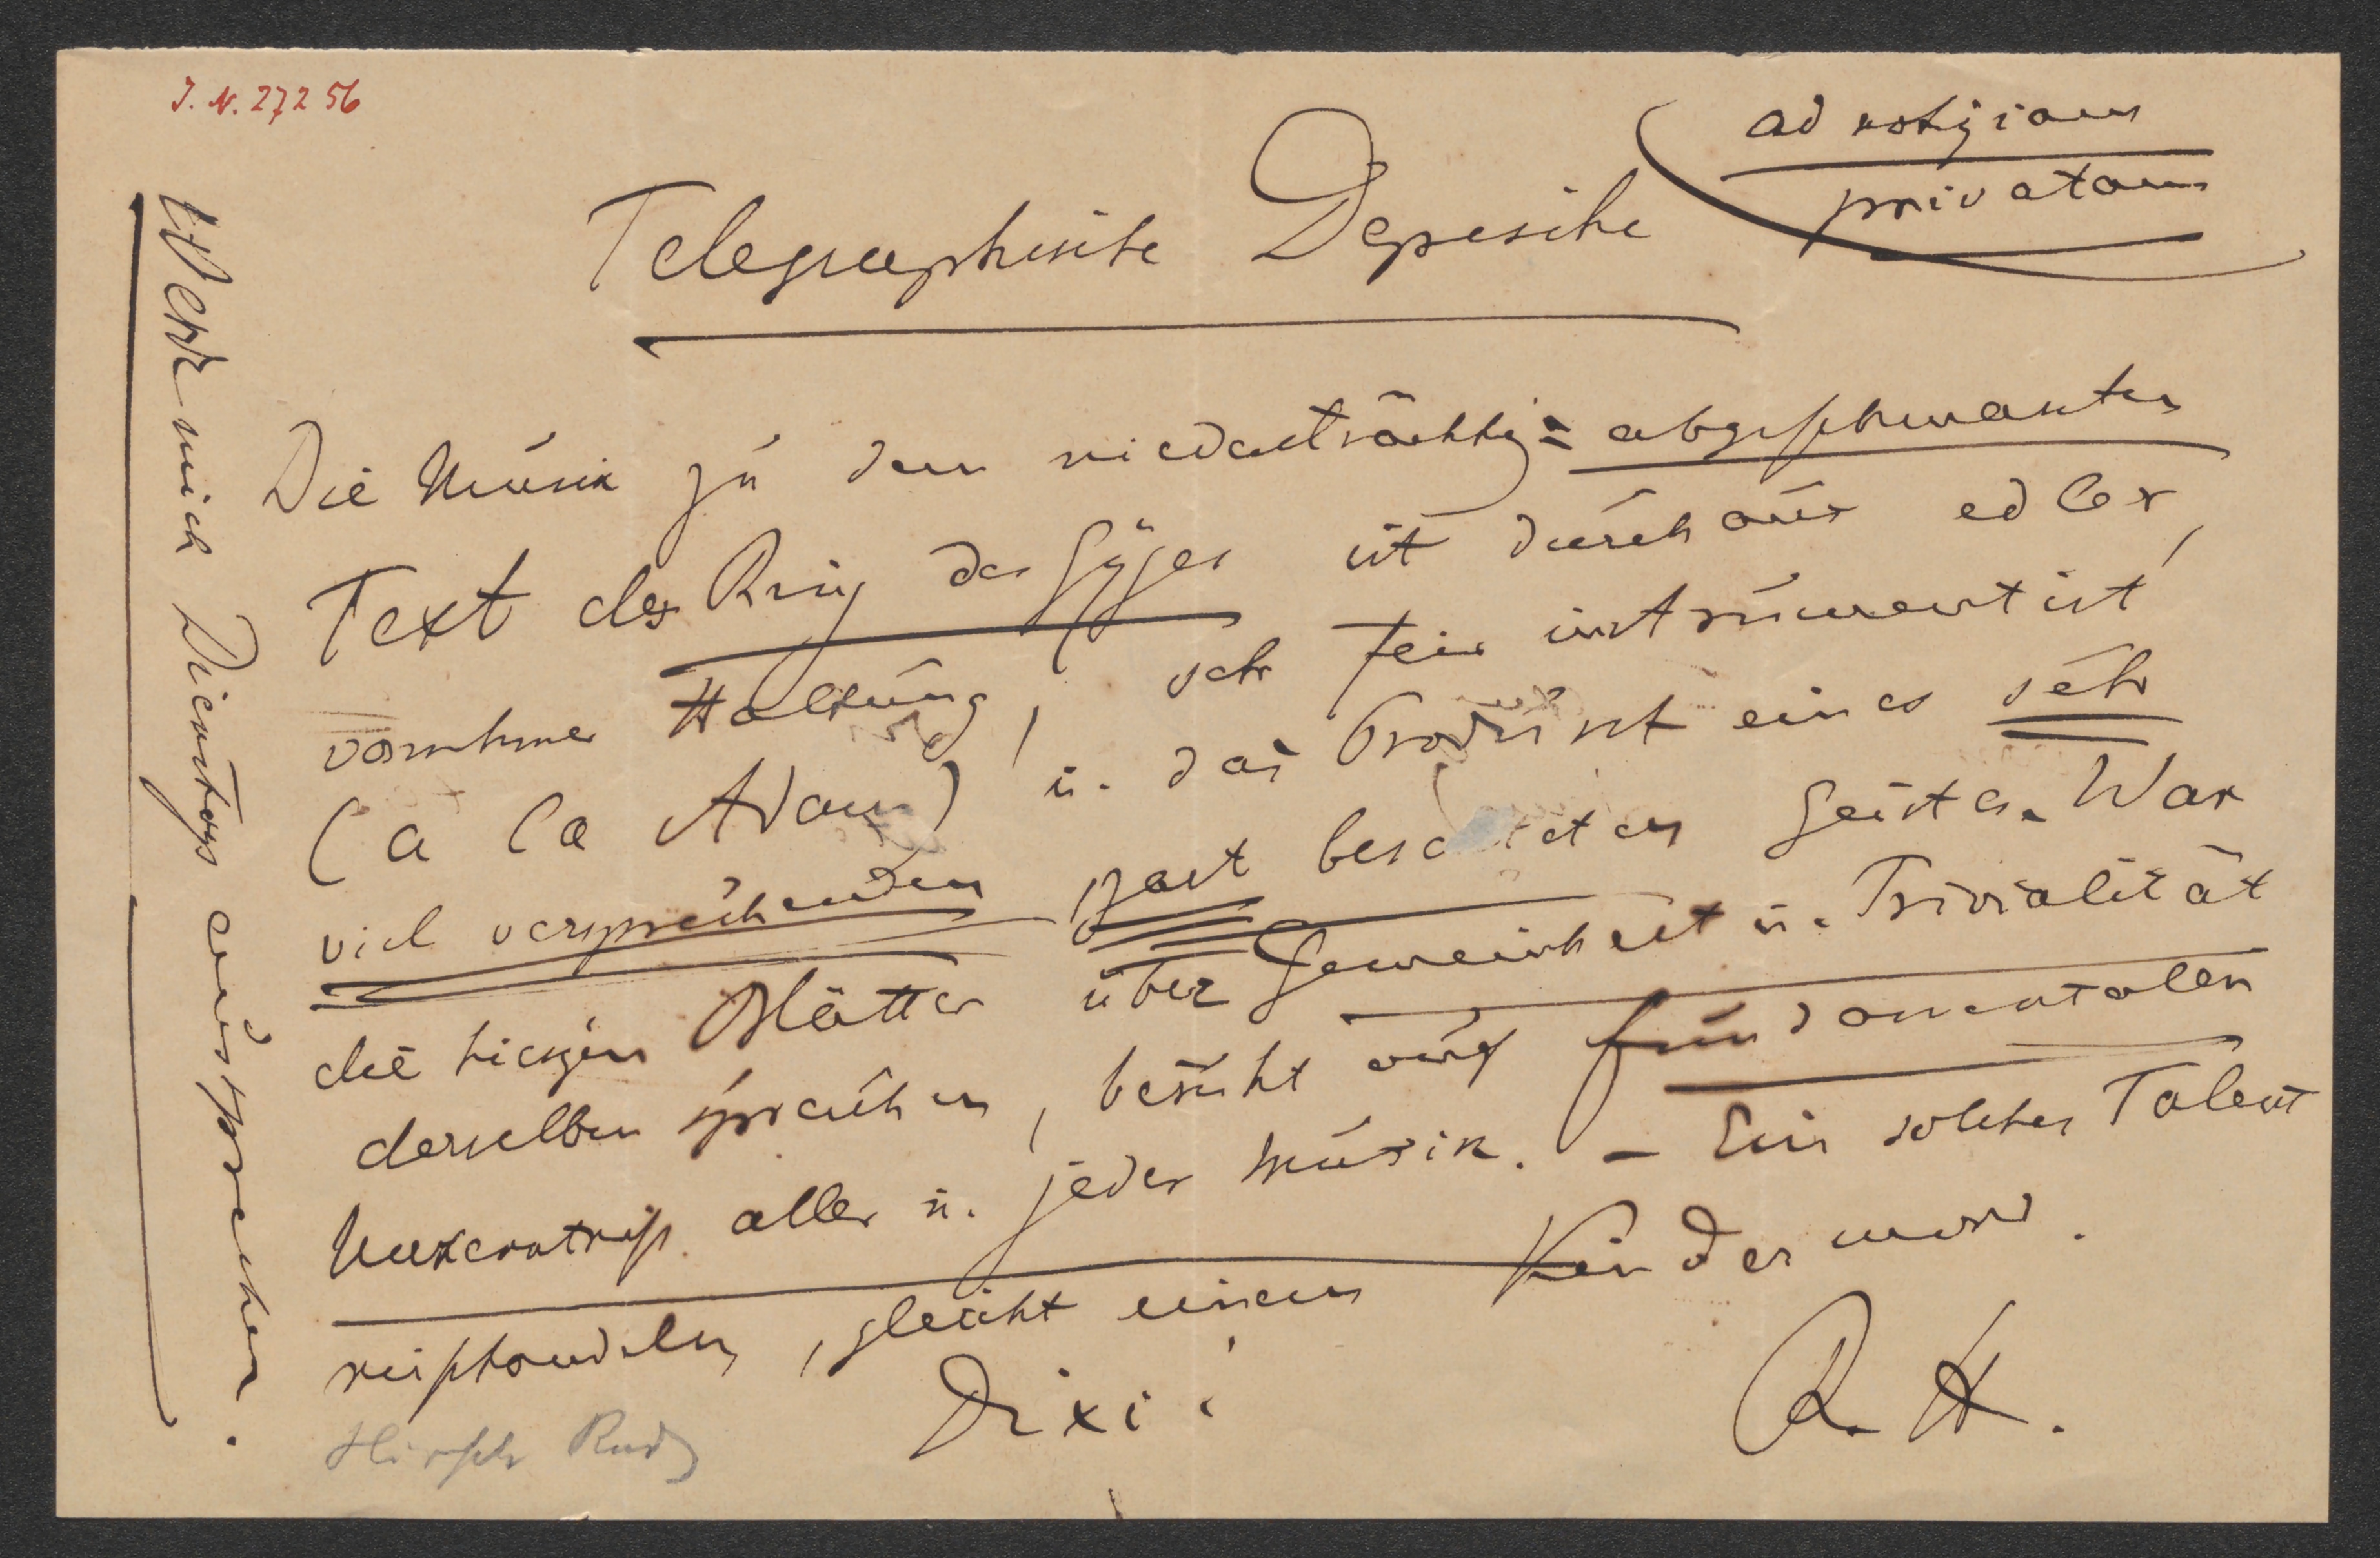 J. N. 27256
ad notiziam
privatam
Telegraphische Depesche
Die Musik zu dem niederträchtig=abgeschmackten
Text des Ring des Gyges ist durchaus edler,
vornehmer Haltung, sehr fein instrumentist
(a la Adam) u. das Produkt eines sehr
viel versprechenden zart besaiteten Geistes. Was
die hiesigen Blätter über Gemeinheit u. Trivialität
derselben sprechen, beruht auf fundamentalen
Unkenntniß aller u. jeder Musik. – Ein solches Talent
mißhandeln, gleicht einem Kindermord.
Dixi!
R. H.
Hirsch Rud
Werde mich Dienstags aussprechen.